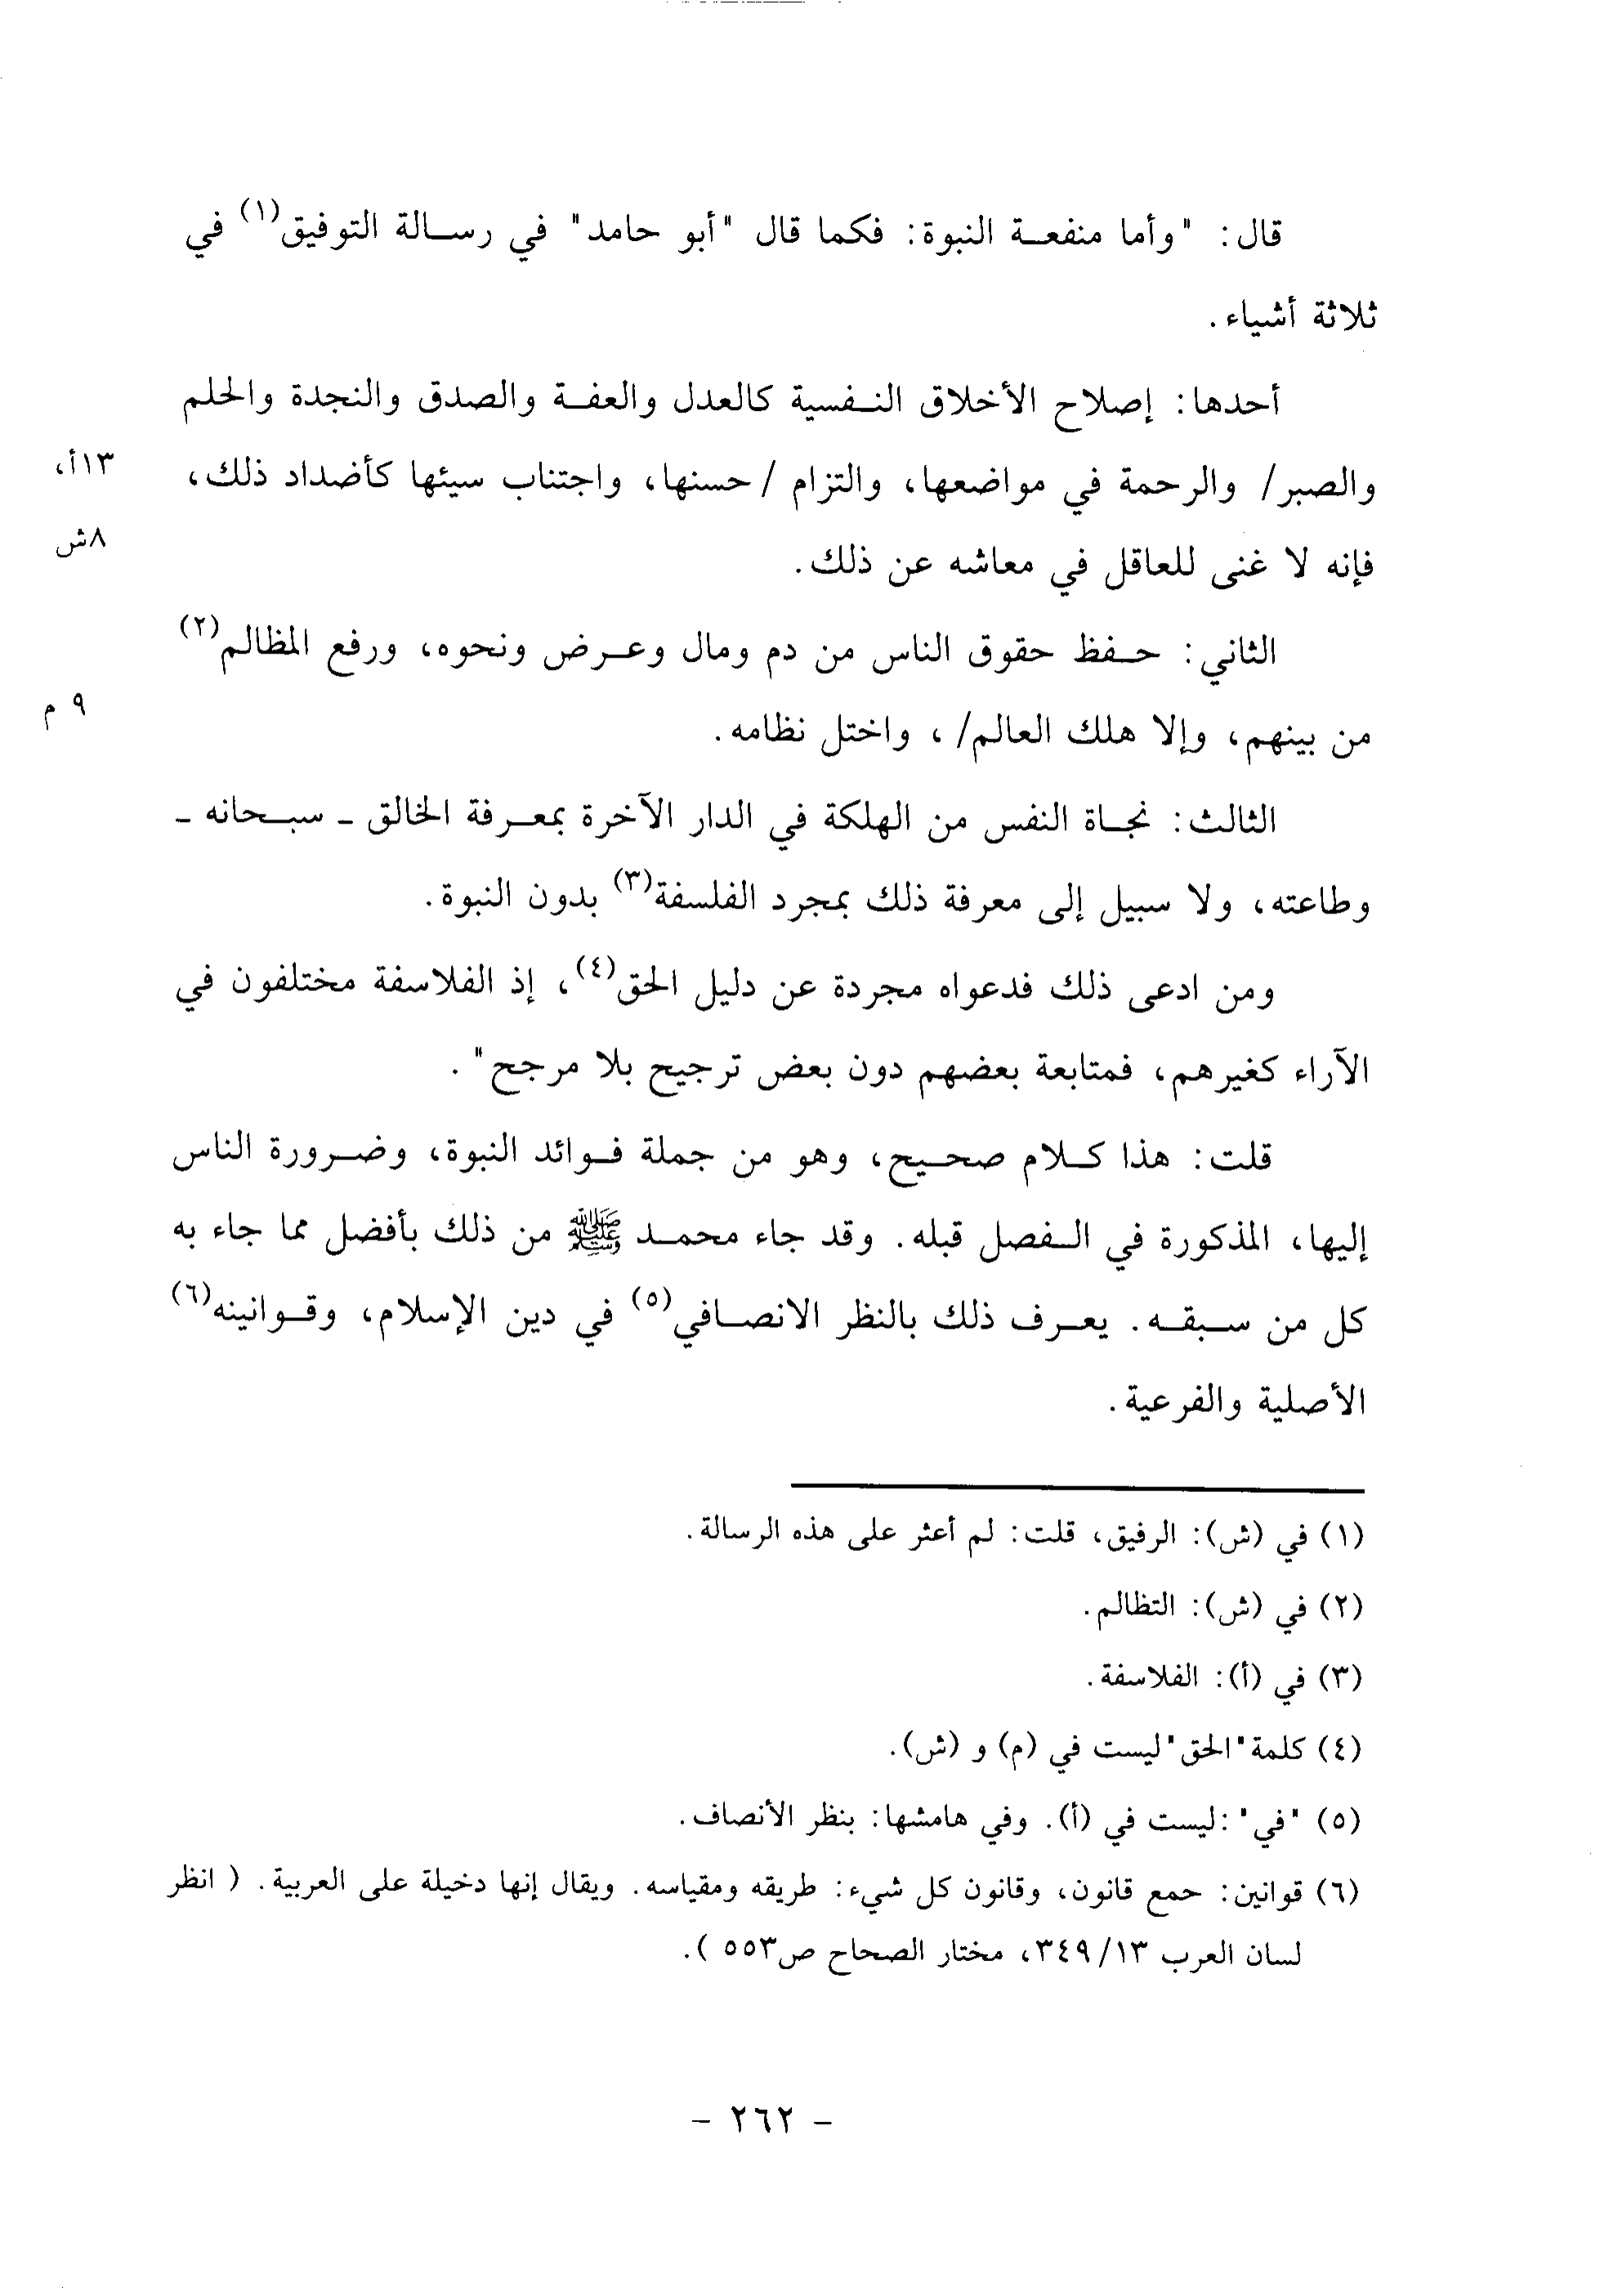 قال: "وأما منفعة النبوة: فكما قال "أبو حامد" في رسالة التوفيق(١) في
ثلاثة أشياء.
أحدها: إصلاح الأخلاق النفسية كالعدل والعفة والصدق والنجدة والحلم
والصبر/ والرحمة في مواضعها، والتزام /حسنها، واجتناب سيئها كأضداد ذلك،
١٣أ،
٨ش
فإنه لا غنى للعاقل في معاشه عن ذلك.
الثاني: حفظ حقوق الناس من دم ومال وعرض ونحوه، ورفع المظالم(٢)
٩ م
من بينهم، وإلا هلك العالم/ ، واختل نظامه.
الثالث: نجاة النفس من الهلكة في الدار الآخرة بمعرفة الخالق ـ سبحانه ـ
وطاعته، ولا سبيل إلى معرفة ذلك بمجرد الفلسفة(٣) بدون النبوة.
ومن ادعى ذلك فدعواه مجردة عن دليل الحق(٤)، إذ الفلاسفة مختلفون في
الآراء كغيرهم، فمتابعة بعضهم دون بعض ترجيح بلا مرجح".
قلت: هذا كلام صحيح، وهو من جملة فوائد النبوة، وضرورة الناس
إليها، المذكورة في الفصل قبله. وقد جاء محمد ﷺ من ذلك بأفضل مما جاء به
كل من سبقه. يعرف ذلك بالنظر الانصافي(٥) في دين الإسلام، وقوانينه(٦)
الأصلية والفرعية.
(١) في (ش): الرفيق، قلت: لم أعثر على هذه الرسالة.
(٢) في (ش): التظالم.
(٣) في (أ): الفلاسفة.
(٤) كلمة "الحق" ليست في (م) و (ش).
(٥) "في" :ليست في (أ). وفي هامشها: بنظر الأنصاف.
(٦) قوانين: حمع قانون، وقانون كل شيء: طريقه ومقياسه. ويقال إنها دخيلة على العربية. ( انظر
لسان العرب ١٣/ ٣٤٩، مختار الصحاح ص٥٥٣ ).
- ٢٦٢ -